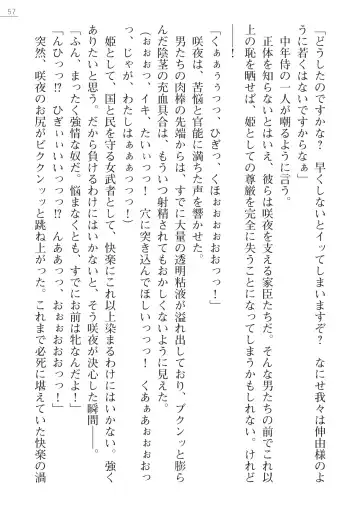 57
「どうしたのですかな？　早くしないとイッてしまいますぞ？　なにせ我々は伸由のよ
うに若くはないですからなぁ」
　中年侍の一人が嘲るように言う。
　正体を知らないとはいえ、彼らは咲夜を支える家臣たちだ。そんな男たちの前でこれ以
上の恥を晒せば、姫としての尊厳を完全に失うことになってしまうかもしれない。
　――！
「くぁぁぅぅつっ、ひぎっ、くほぉぉぉぉおおっっ！」
　咲夜は、苦悩と官能に満ちた声を響かせた。
　男たちの肉棒の先端からは、すでに大量の透明粘液が溢れ出しており、プクンッと膨ら
んだ陰茎の充血具合は、もういつ射精されてもおかしくないほどだ。
（ぉぉぉっ、イキ、たいぃっっ！　穴に突き込んでほしいっっっ！　くあぁあぉぉぉおっ
つ、じゃが、わたしはぁぁぁっっっ！）
　姫として、国と民を守る女武者として、快楽にこれ以上染まるわけにはいかない。強く
ありたいと思う。だから負けるわけにはいかないと、そう咲夜が決心した瞬間――。
「ふん、まったく強情な奴だ。悩まなくとも、すでにお前は牝なんだよ！」
「んひっっ!?　ひぎぃぃいいっっっ!?　んああっっ、おぉぉおおおっっ！」
　突然、咲夜のお尻がビクンッッと跳ね上がった。これまで必死に堪えていた快楽の渦